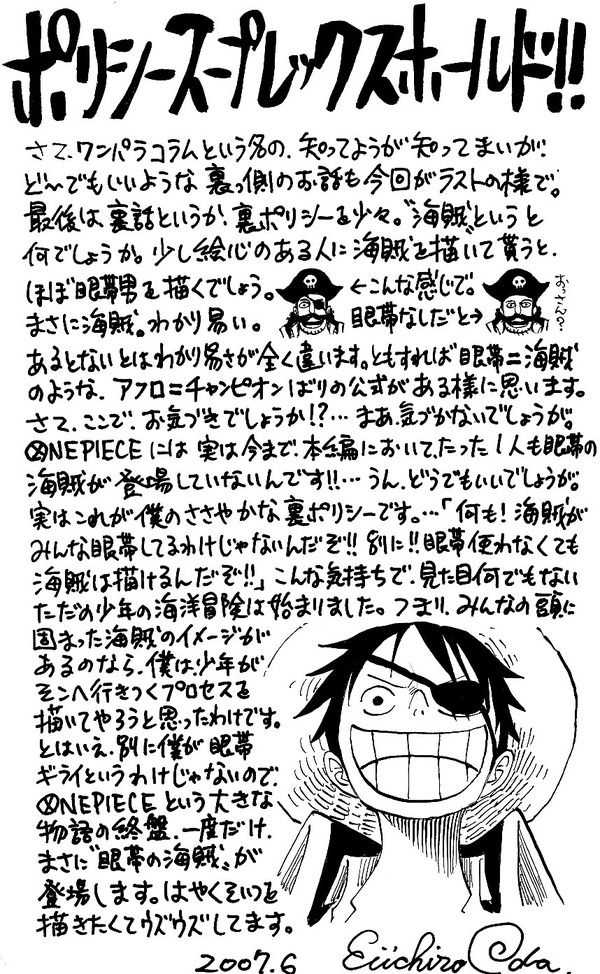 ポリシースープレックスホールド!!
さて、ワンパラコラムという名の、知ってようが知ってまいが、
ど〜でもいいような裏っ側のお話も今回がラストの様で。
最後は裏話というか、裏ポリシーを少々。“海賊”というと
何でしょうか。少し絵心のある人に海賊を描いて貰うと、
ほぼ眼帯男を描くでしょう。
←こんな感じで。
おっさん?
まさに海賊。わかり易い。
眼帯なしだと→
あるとないとはわかり易さが全く違います。ともすれば眼帯=海賊
のような、アフロ=チャンピオンばりの公式がある様に思います。
さて、ここで、お気づきでしょうか!?…まあ、気づかないでしょうが。
ONEPIECEには実は今まで、本編において、たった1人も眼帯の
海賊が登場していないんです!!…うん、どうでもいいでしょうが。
実はこれが僕のささやかな裏ポリシーです。…「何も!海賊が
みんな眼帯してるわけじゃないんだぞ!!別に!!眼帯使わなくても
海賊は描けるんだぞ!!」こんな気持ちで、見た目何でもない
ただの少年の海洋冒険は始まりました。つまり、みんなの頭に
固まった海賊のイメージが
あるのなら、僕は少年が
そこへ行きつくプロセスを
描いてやろうと思ったわけです。
とはいえ、別に僕が眼帯
ギライというわけじゃないので、
ONEPIECEという大きな
物語の終盤、一度だけ、
まさに“眼帯の海賊”が
登場します。はやくそいつを
描きたくてウズウズしてます。
2007.6
Eiichiro Oda